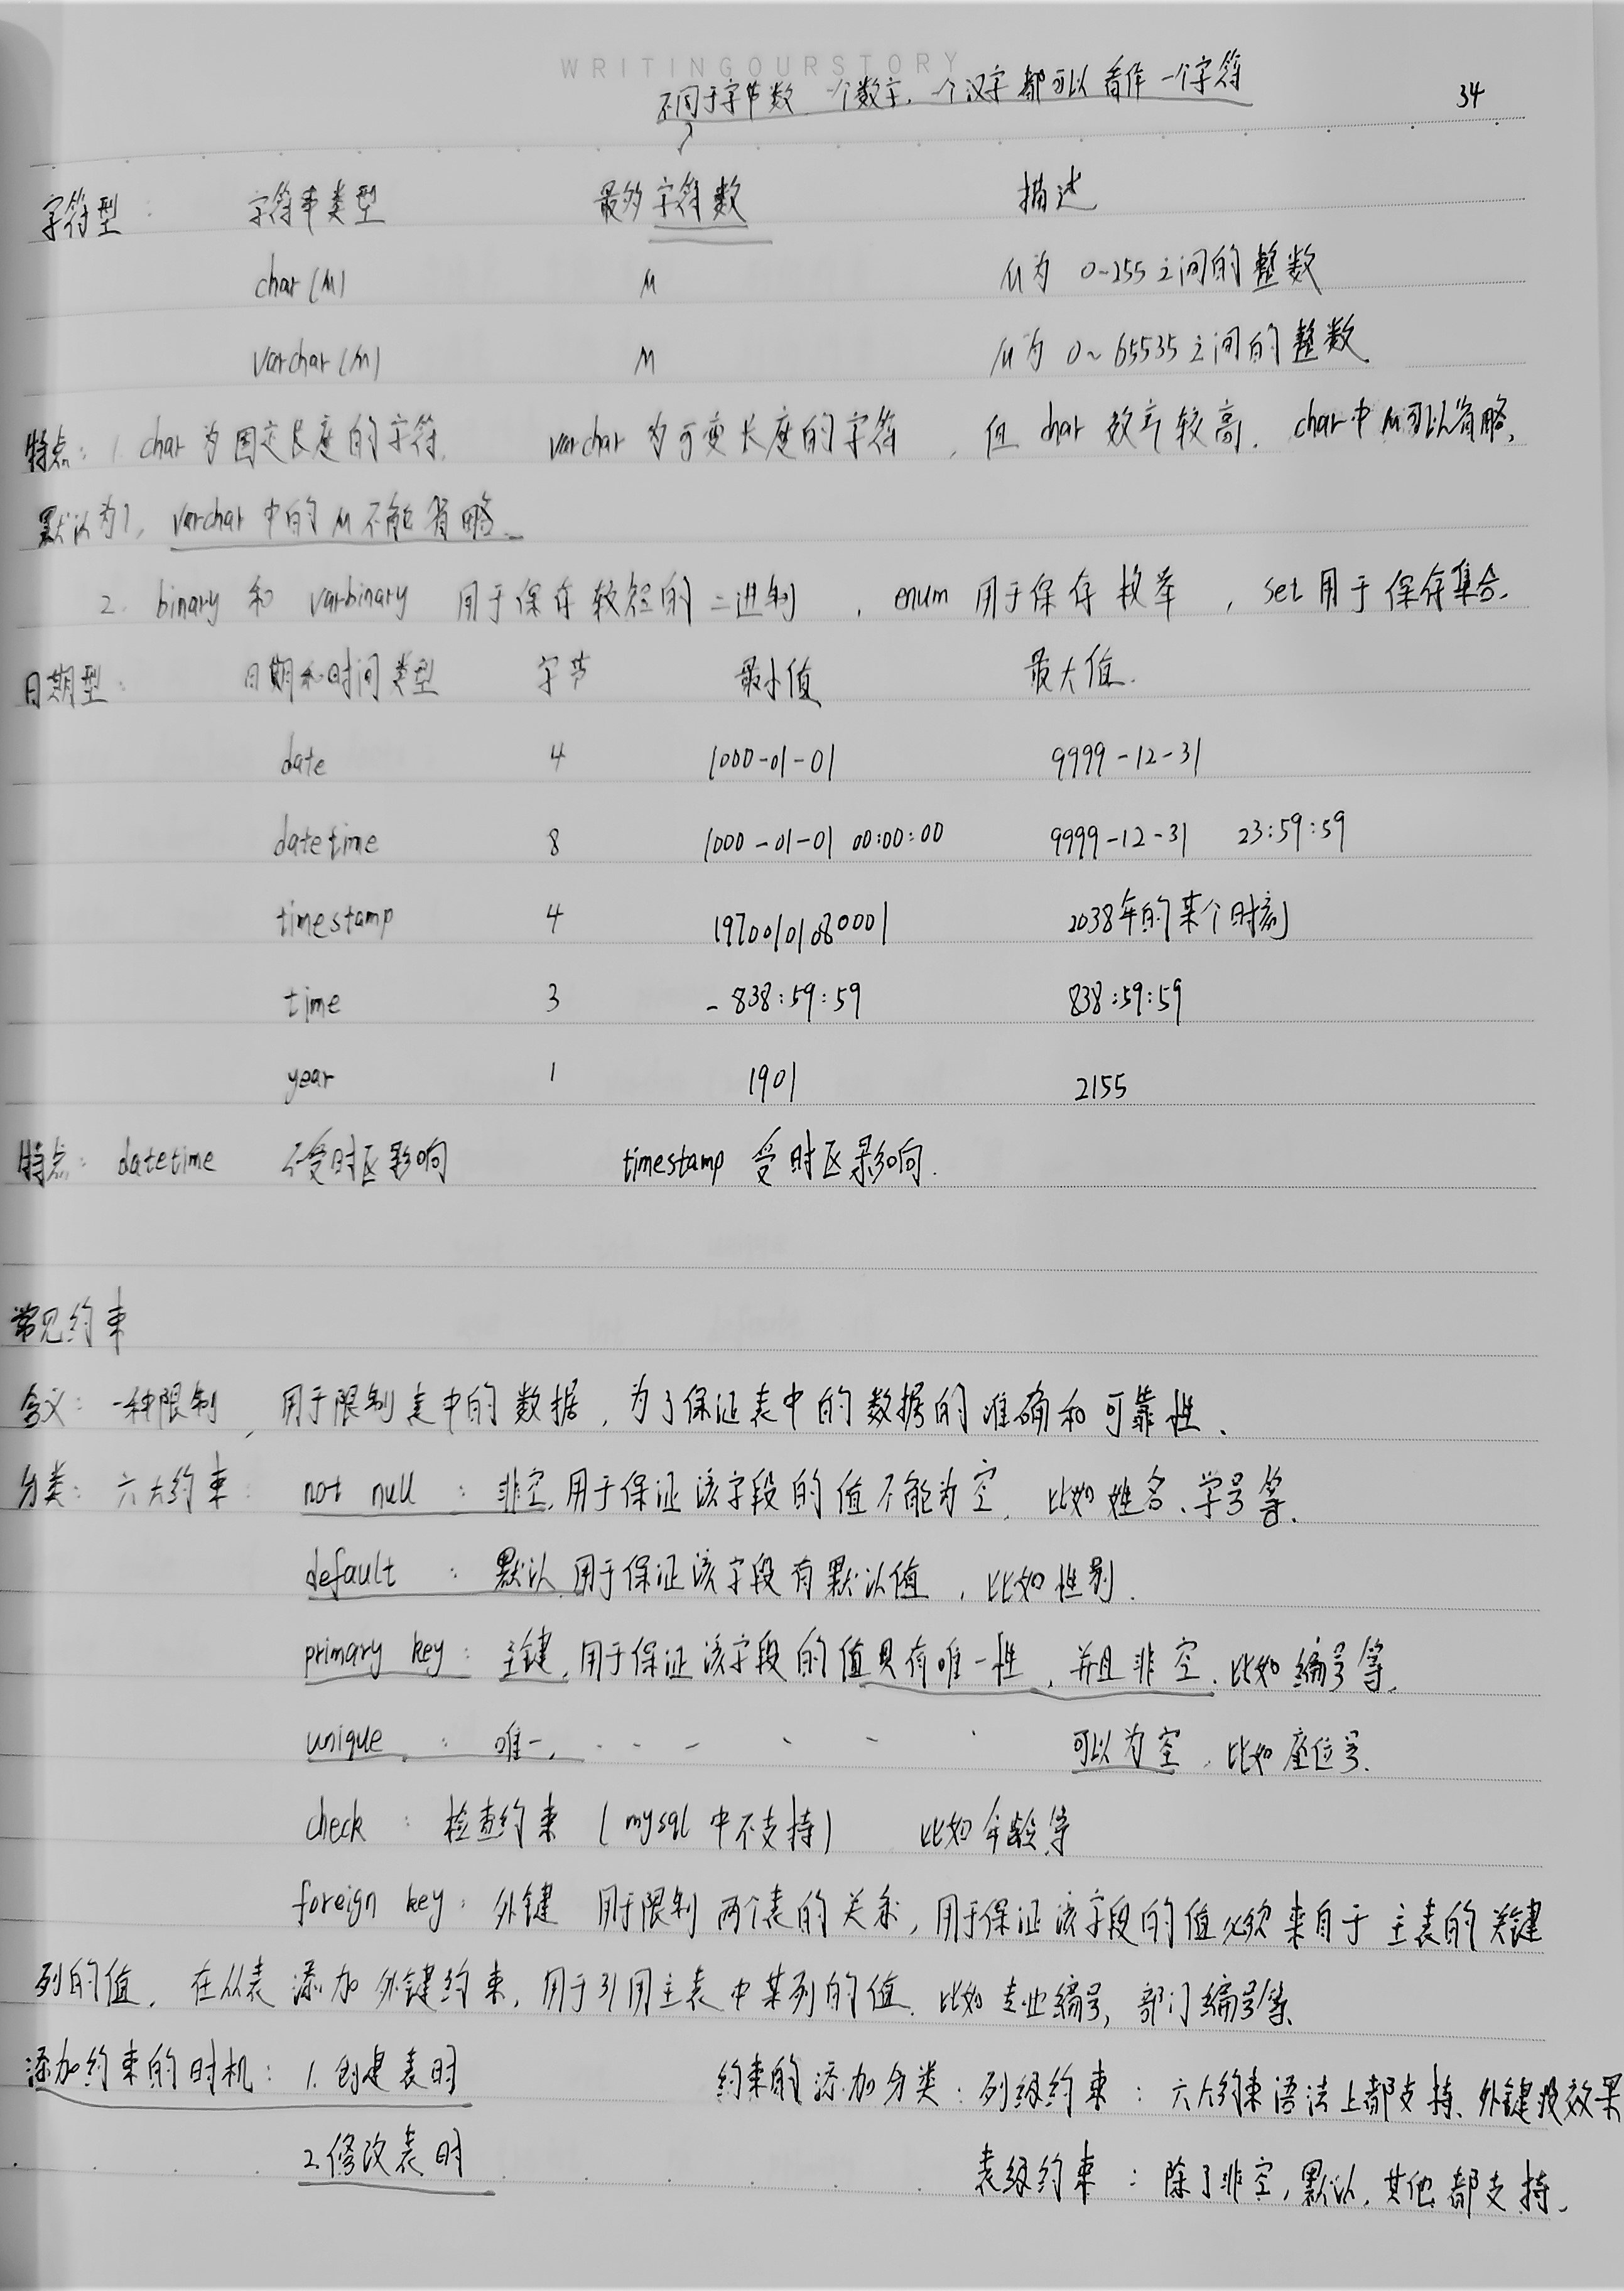 WRITINGOURSTORY
不同于字节数 一个数字, 一个汉字 都可以看作 一个字符
34
字符型: 字符串类型 最多字符数 描述
char(M) M M为 0~255之间的整数
varchar(M) M M为 0~65535之间的整数
特点: 1. char为固定长度的字符, varchar为可变长度的字符, 但char效率较高. char中M可以省略,
默认为1, varchar中的M不能省略.
2. binary和varbinary 用于保存较短的二进制, enum用于保存枚举, set用于保存集合.
日期型: 日期和时间类型 字节 最小值 最大值.
date 4 1000-01-01 9999-12-31
datetime 8 1000-01-01 00:00:00 9999-12-31 23:59:59
timestamp 4 19700101080001 2038年的某个时刻
time 3 -838:59:59 838:59:59
year 1 1901 2155
特点: datetime 不受时区影响 timestamp 受时区影响.
常见约束
含义: 一种限制, 用于限制表中的数据, 为了保证表中的数据的准确和可靠性.
分类: 六大约束: not null : 非空, 用于保证该字段的值不能为空. 比如姓名、学号等.
default : 默认, 用于保证该字段有默认值, 比如性别.
primary key : 主键, 用于保证该字段的值具有唯一性, 并且非空. 比如编号等.
unique : 唯一, - - - - - 可以为空, 比如座位号.
check : 检查约束 (mysql中不支持) 比如年龄等
foreign key : 外键 用于限制两个表的关系, 用于保证该字段的值必须来自于主表的关键
列的值. 在从表添加外键约束, 用于引用主表中某列的值. 比如专业编号, 部门编号等.
添加约束的时机: 1. 创建表时 约束的添加分类: 列级约束 : 六大约束语法上都支持、外键没效果
2. 修改表时 表级约束 : 除了非空, 默认, 其他都支持.